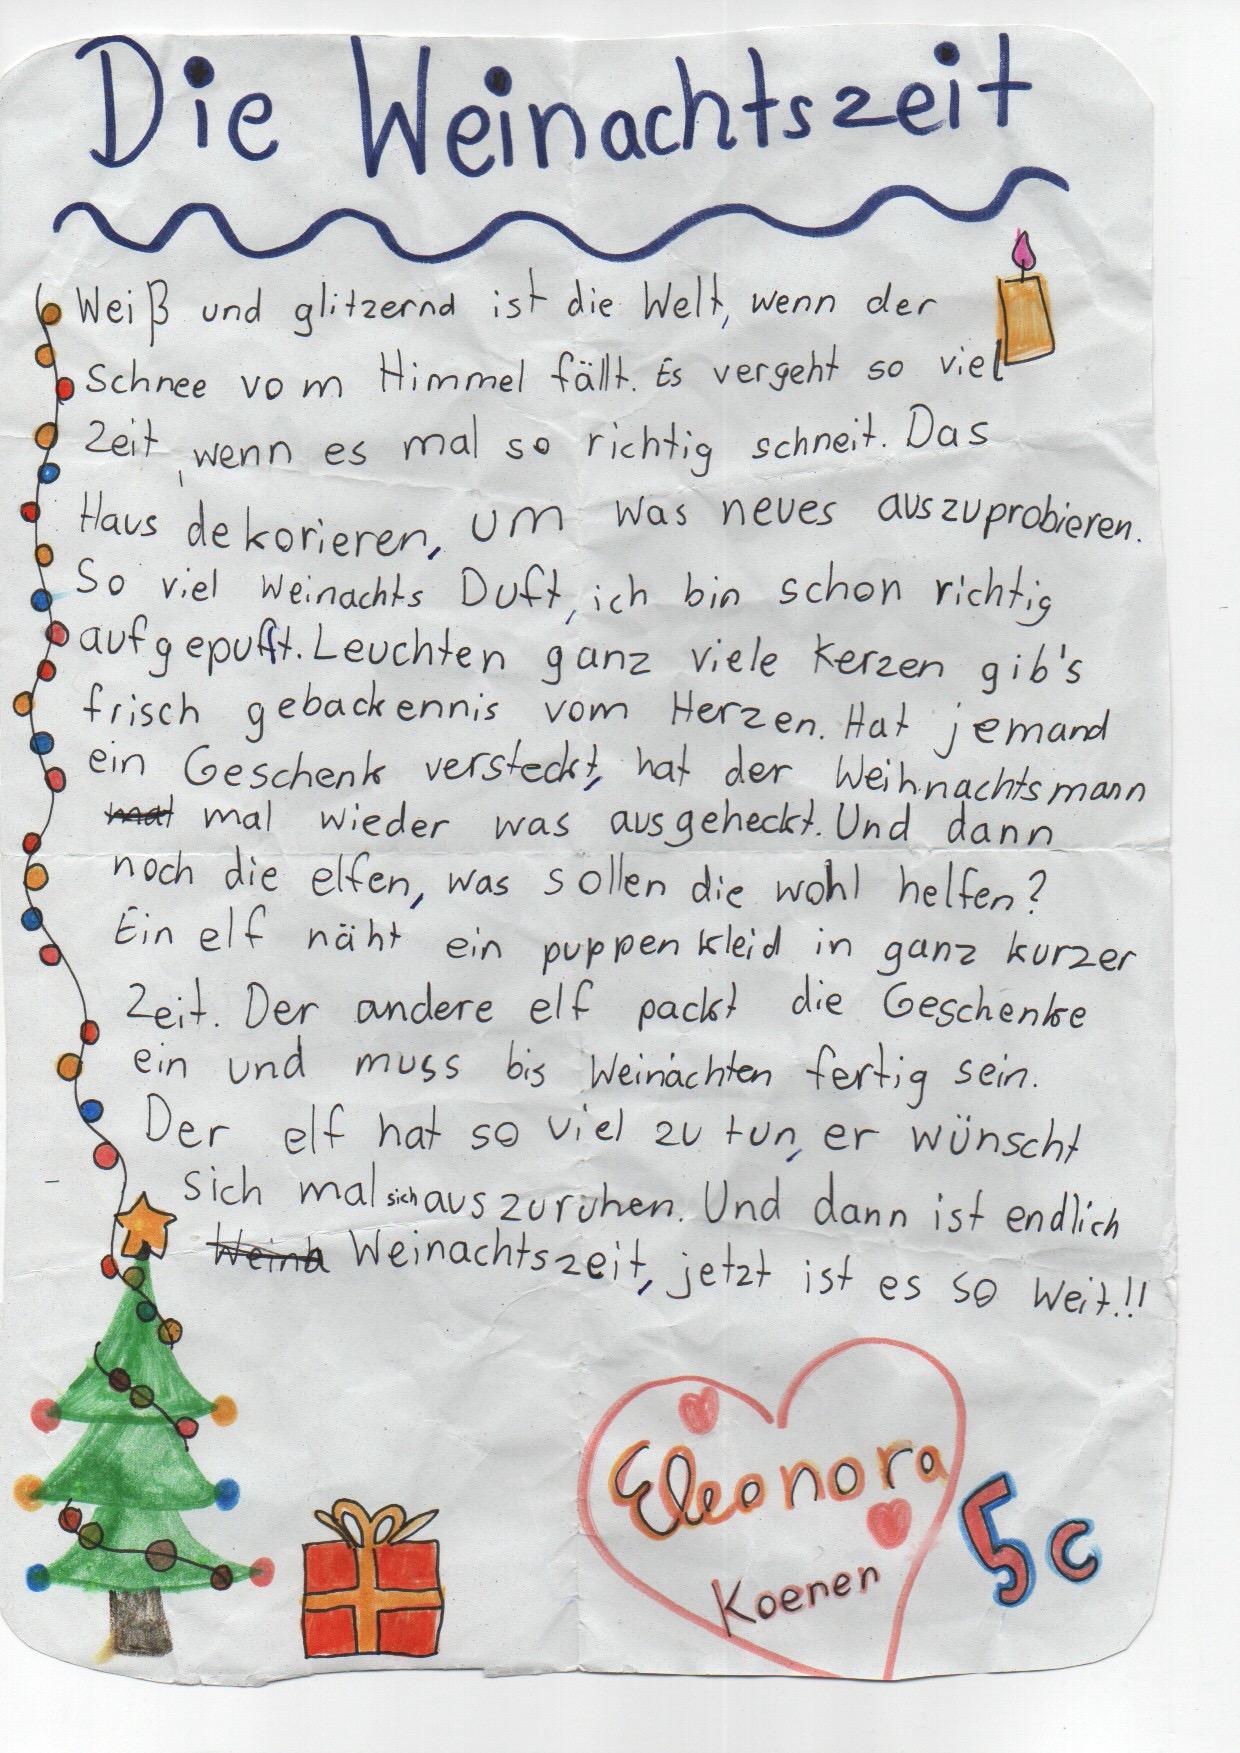 Die Weinachtszeit
Weiß und glitzernd ist die Welt, wenn der
Schnee vom Himmel fällt. Es vergeht so viel
Zeit, wenn es mal so richtig schneit. Das
Haus dekorieren, um was neues auszuprobieren.
So viel Weinachts Duft, ich bin schon richtig
aufgepufft. Leuchten ganz viele Kerzen gib's
frisch gebackennis vom Herzen. Hat jemand
ein Geschenk versteckt, hat der Weihnachtsmann
mal wieder was ausgeheckt. Und dann
noch die elfen, was sollen die wohl helfen?
Ein elf näht ein puppenkleid in ganz kurzer
Zeit. Der andere elf packt die Geschenke
ein und muss bis Weinachten fertig sein.
Der elf hat so viel zu tun, er wünscht
sich mal sich auszuruhen. Und dann ist endlich
Weinachtszeit, jetzt ist es so weit!!
Eleonora
Koenen
5c